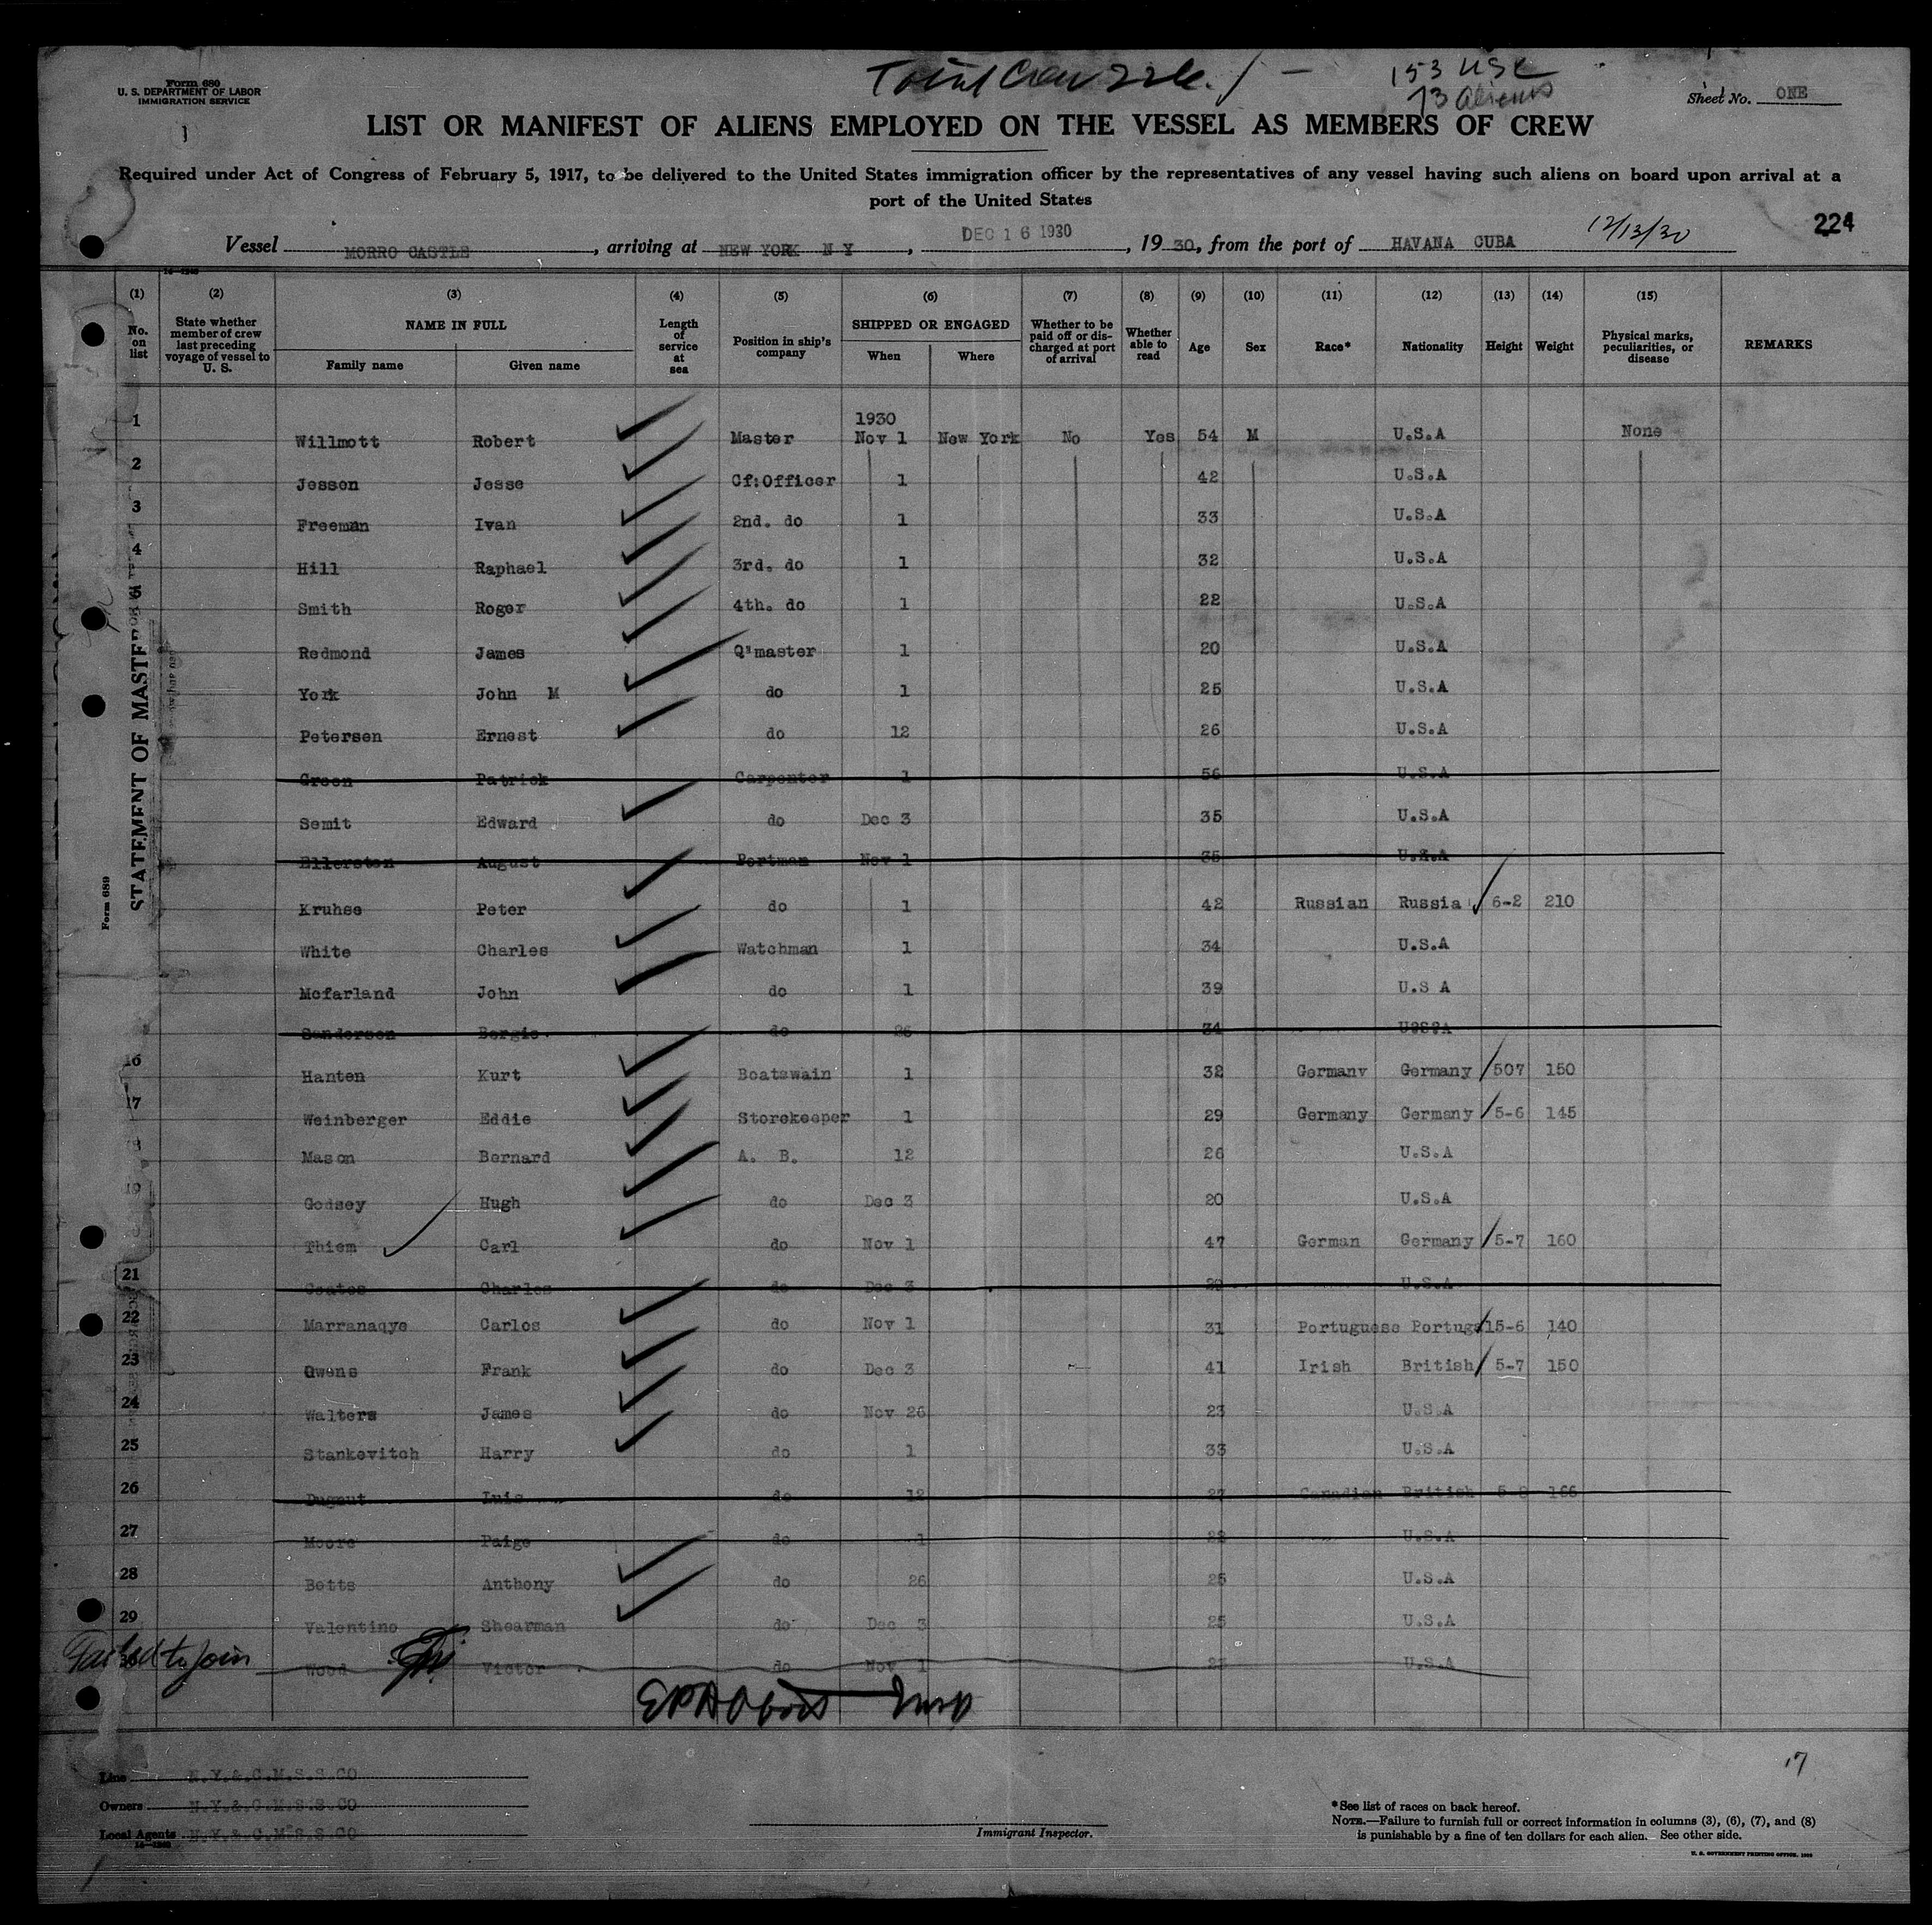 Form 689
U. S. DEPARTMENT OF LABOR
IMMIGRATION SERVICE
1
Total Crew 226. / —
153 USC
73 Aliens
Sheet No. ONE
LIST OR MANIFEST OF ALIENS EMPLOYED ON THE VESSEL AS MEMBERS OF CREW
Required under Act of Congress of February 5, 1917, to be delivered to the United States immigration officer by the representatives of any vessel having such aliens on board upon arrival at a
port of the United States
Vessel MORRO CASTLE, arriving at NEW YORK N Y, DEC 16 1930, 1930, from the port of HAVANA CUBA 12/13/30
224
(1) (2) (3) (4) (5) (6) (7) (8) (9) (10) (11) (12) (13) (14) (15)
No. on list | State whether member of crew last preceding voyage of vessel to U. S. | NAME IN FULL Family name Given name | Length of service at sea | Position in ship's company | SHIPPED OR ENGAGED When Where | Whether to be paid off or discharged at port of arrival | Whether able to read | Age | Sex | Race* | Nationality | Height | Weight | Physical marks, peculiarities, or disease | REMARKS
1930
1 Willmott Robert Master Nov 1 New York No Yes 54 M U.S.A None
2 Jessen Jesse Cf:Officer 1 42 U.S.A
3 Freeman Ivan 2nd. do 1 33 U.S.A
4 Hill Raphael 3rd. do 1 32 U.S.A
5 Smith Roger 4th. do 1 22 U.S.A
Redmond James Q'master 1 20 U.S.A
York John M do 1 25 U.S.A
Petersen Ernest do 12 26 U.S.A
Green Patrick Carpenter 1 56 U.S.A
Semit Edward do Dec 3 35 U.S.A
Ellersten August Portman Nov 1 35 U.S.A
Kruhse Peter do 1 42 Russian Russia 6-2 210
White Charles Watchman 1 34 U.S.A
Mcfarland John do 1 39 U.S A
Sandersen Bergie. do 26 34 U?S?A
16 Hanten Kurt Boatswain 1 32 Germany Germany 507 150
17 Weinberger Eddie Storekeeper 1 29 Germany Germany 5-6 145
8 Mason Bernard A. B. 12 26 U.S.A
19 Godsey Hugh do Dec 3 20 U.S.A
Thiem Carl do Nov 1 47 German Germany 5-7 160
21 Coates Charles do Dec 3 29 U.S.A
22 Marranaqye Carlos do Nov 1 31 Portuguese Portugal 5-6 140
23 Owens Frank do Dec 3 41 Irish British 5-7 150
24 Walters James do Nov 26 23 U.S.A
25 Stankevitch Harry do 1 33 U.S.A
26 Dugaut Luis do 12 27 Canadian British 5-8 166
27 Moore Paige do 1 22 U.S.A
28 Betts Anthony do 26 25 U.S.A
29 Valentino Shearman do Dec 3 25 U.S.A
Failed to Join Wood Victor do Nov 1 23 U.S.A
STATEMENT OF MASTER
Form 689
17
Line N.Y.&.C.M.S.S.CO
Owners N.Y.&.C.M.S.S.CO
Local Agents N.Y.&.C.M.S.S.CO
Immigrant Inspector.
*See list of races on back hereof.
NOTE.—Failure to furnish full or correct information in columns (3), (6), (7), and (8)
is punishable by a fine of ten dollars for each alien. See other side.
U. S. GOVERNMENT PRINTING OFFICE